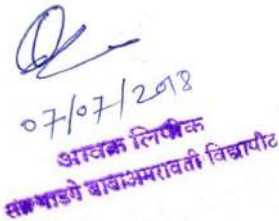 07/07/2018
आवक लिपीक
संत गाडगे बाबा अमरावती विद्यापीठ